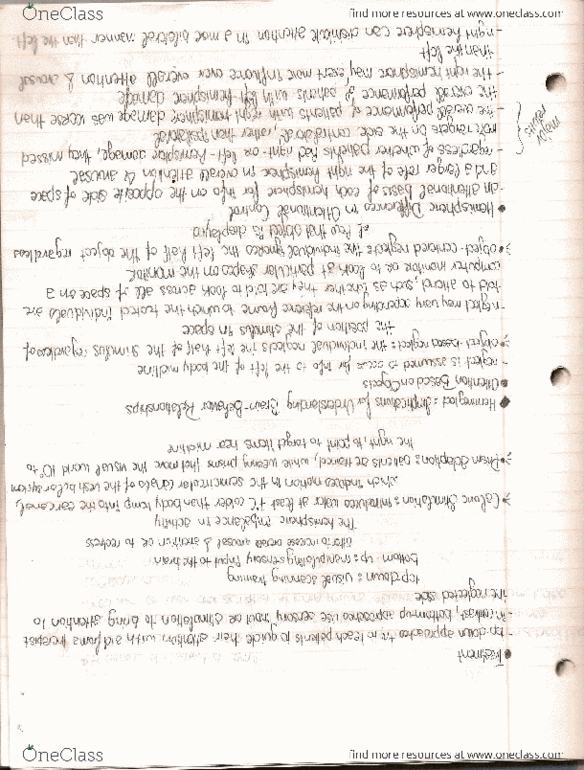 OneClass
find more resources at www.oneclass.com
• Treatment
- top-down approaches try to teach patients to guide their attention with aid from a therapist
- in contrast, bottom-up approaches use sensory input or stimulation to bring attention to
the neglected side
top-down: visual scanning training
bottom-up: manipulating sensory input to the brain
also to increase overall arousal & attention or to redress
the hemispheric imbalance in activity
→ Caloric Stimulation: introduces water at least 7°C colder than body temp into the ear canal,
which induces motion in the semicircular canals of the vestibular system
→ Prism Adaptation: patients are trained, while wearing prisms that move the visual world 10° to
the right, to point to target items near midline
• Hemineglect: Implications for Understanding Brain-Behavior Relationships
• Attention Based on Objects
- neglect is assumed to occur for info to the left of the body midline
→ object-based neglect: the individual neglects the left half of the stimulus regardless of
the position of the stimulus in space
- neglect may vary depending on the reference frame to which the tested individuals are
told to attend, such as whether they are told to look across all of space on a
computer monitor or to look at particular shapes on the monitor
→ object-centered neglect: the individual ignores the left half of the object regardless
of how that object is displayed
• Hemispheric Differences in Attentional Control
- an attentional basis of each hemisphere for info on the opposite side of space
and a larger role of the right hemisphere in overall attention & arousal
- regardless of whether patients had right- or left-hemisphere damage, they missed
more targets on the side contralateral, rather than ipsilateral
- the overall performance of patients with right hemisphere damage was worse than
the overall performance of patients with left hemisphere damage
- the right hemisphere may exert more influence over overall attention & arousal
than the left
- right hemisphere can control attention in a more bilateral manner than the left
OneClass
find more resources at www.oneclass.com